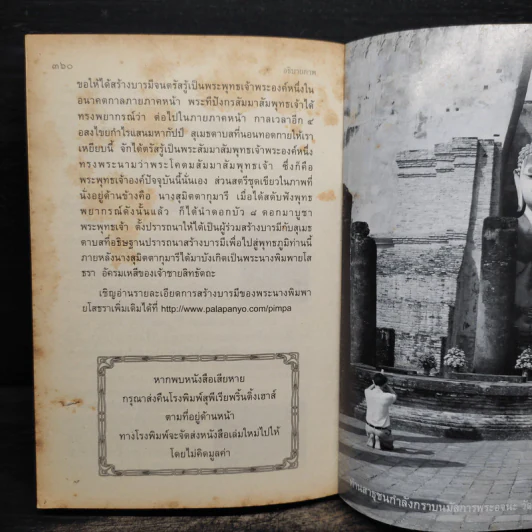 ๓๖๐
อธิบายภาพ
ขอให้ได้สร้างบารมีจนตรัสรู้เป็นพระพุทธเจ้าพระองค์หนึ่งใน
อนาคตกาลภายภาคหน้า พระทีปังกรสัมมาสัมพุทธเจ้าได้
ทรงพยากรณ์ว่า ต่อไปในภายภาคหน้า กาลเวลาอีก ๔
อสงไขยกำไรแสนมหากัปป์ สุเมธดาบสที่นอนทอดกายให้เรา
เหยียบนี้ จักได้ตรัสรู้เป็นพระสัมมาสัมพุทธเจ้าพระองค์หนึ่ง
ทรงพระนามว่าพระโคดมสัมมาสัมพุทธเจ้า ซึ่งก็คือ
พระพุทธเจ้าองค์ปัจจุบันนี้นั่นเอง ส่วนสตรีชุดเขียวในภาพที่
นั่งอยู่ด้านข้างคือ นางสุมิตตากุมารี เมื่อได้สดับฟังพุทธ
พยากรณ์ดังนั้นแล้ว ก็ได้นำดอกบัว ๘ ดอกมาบูชา
พระพุทธเจ้า ตั้งปรารถนาให้ได้เป็นผู้ร่วมสร้างบารมีกับสุเมธ
ดาบสที่อธิษฐานปรารถนาสร้างบารมีเพื่อไปสู่พุทธภูมิท่านนี้
ภายหลังนางสุมิตตากุมารีได้มาบังเกิดเป็นพระนางพิมพายโส
ธรา อัครมเหสีของเจ้าชายสิทธัตถะ
เชิญอ่านรายละเอียดการสร้างบารมีของพระนางพิมพา
ยโสธราเพิ่มเติมได้ที่ http://www.palapanyo.com/pimpa
หากพบหนังสือเสียหาย
กรุณาส่งคืนโรงพิมพ์สุพีเรียพริ้นติ้งเฮาส์
ตามที่อยู่ด้านหน้า
ทางโรงพิมพ์จะจัดส่งหนังสือเล่มใหม่ไปให้
โดยไม่คิดมูลค่า
สาธุชนกำลังกราบนมัสการพระอจนะ